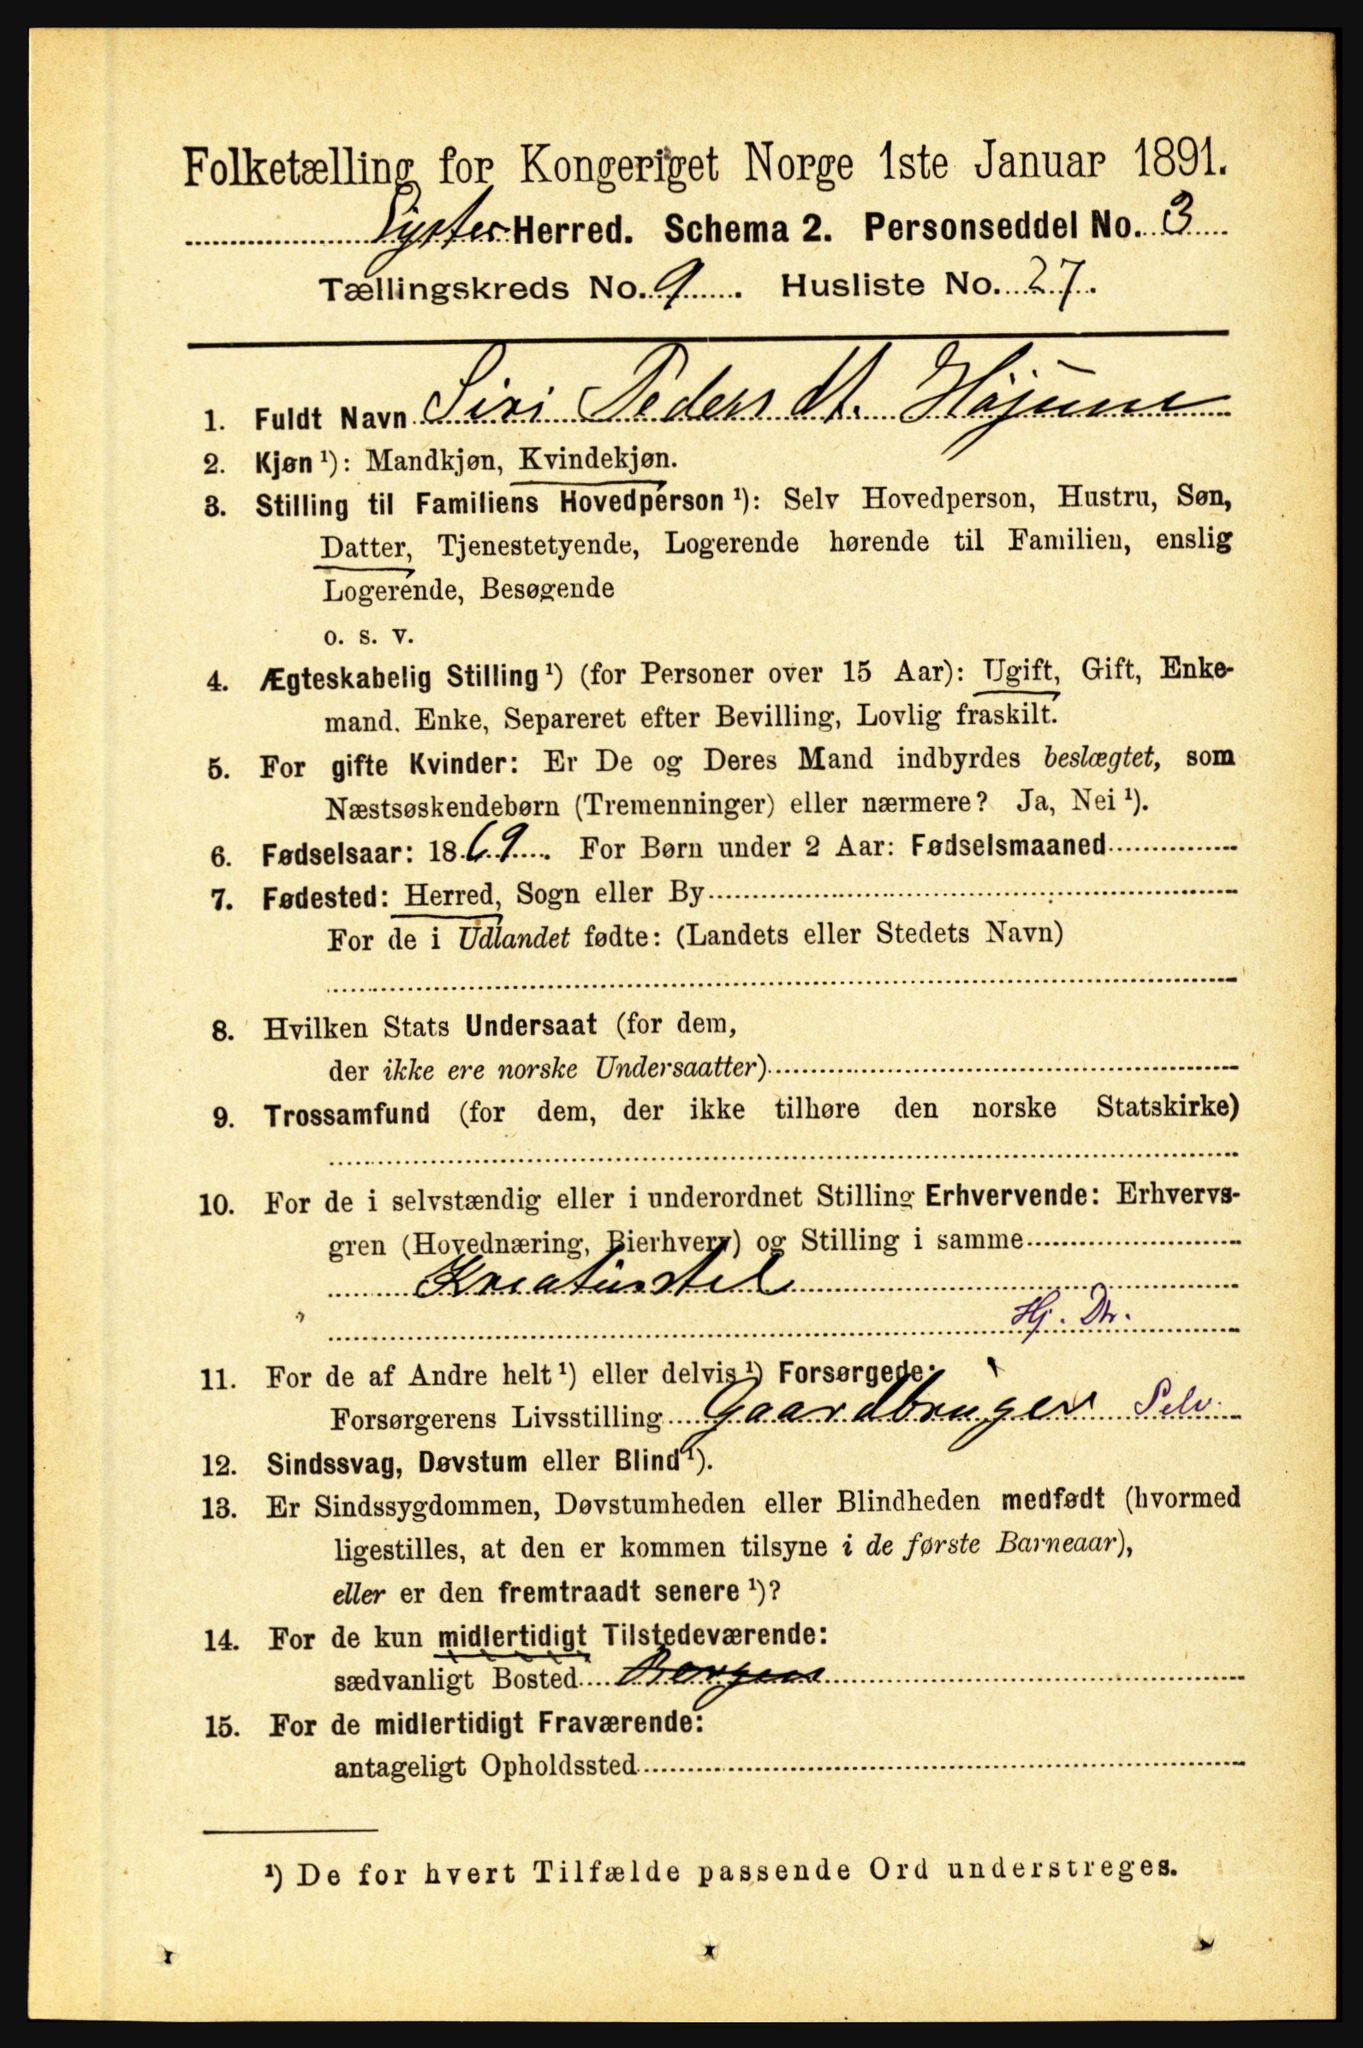 Folketælling for Kongeriget Norge 1ste Januar 1891.
Lyster Herred. Schema 2. Personseddel No. 3
Tællingskreds No. 9. Husliste No. 27.
1. Fuldt Navn Siri Peders dt. Højum
2. Kjøn ¹): Mandkjøn, Kvindekjøn.
3. Stilling til Familiens Hovedperson ¹): Selv Hovedperson, Hustru, Søn,
Datter, Tjenestetyende, Logerende hørende til Familien, enslig
Logerende, Besøgende
o. s. v.
4. Ægteskabelig Stilling ¹) (for Personer over 15 Aar): Ugift, Gift, Enke-
mand. Enke, Separeret efter Bevilling, Lovlig fraskilt.
5. For gifte Kvinder: Er De og Deres Mand indbyrdes beslægtet, som
Næstsøskendebørn (Tremenninger) eller nærmere? Ja, Nei ¹).
6. Fødselsaar: 1869. For Børn under 2 Aar: Fødselsmaaned
7. Fødested: Herred, Sogn eller By
For de i Udlandet fødte: (Landets eller Stedets Navn)
8. Hvilken Stats Undersaat (for dem,
der ikke ere norske Undersaatter)
9. Trossamfund (for dem, der ikke tilhøre den norske Statskirke)
10. For de i selvstændig eller i underordnet Stilling Erhvervende: Erhvervs-
gren (Hovednæring, Bierhverv) og Stilling i samme
Kreaturstel
Hj. Dtr.
11. For de af Andre helt ¹) eller delvis ¹) Forsørgede:
Forsørgerens Livsstilling Gaardbruger Selv.
12. Sindssvag, Døvstum eller Blind ¹).
13. Er Sindssygdommen, Døvstumheden eller Blindheden medfødt (hvormed
ligestilles, at den er kommen tilsyne i de første Barneaar),
eller er den fremtraadt senere ¹)?
14. For de kun midlertidigt Tilstedeværende:
sædvanligt Bosted Bergen
15. For de midlertidigt Fraværende:
antageligt Opholdssted
¹) De for hvert Tilfælde passende Ord understreges.